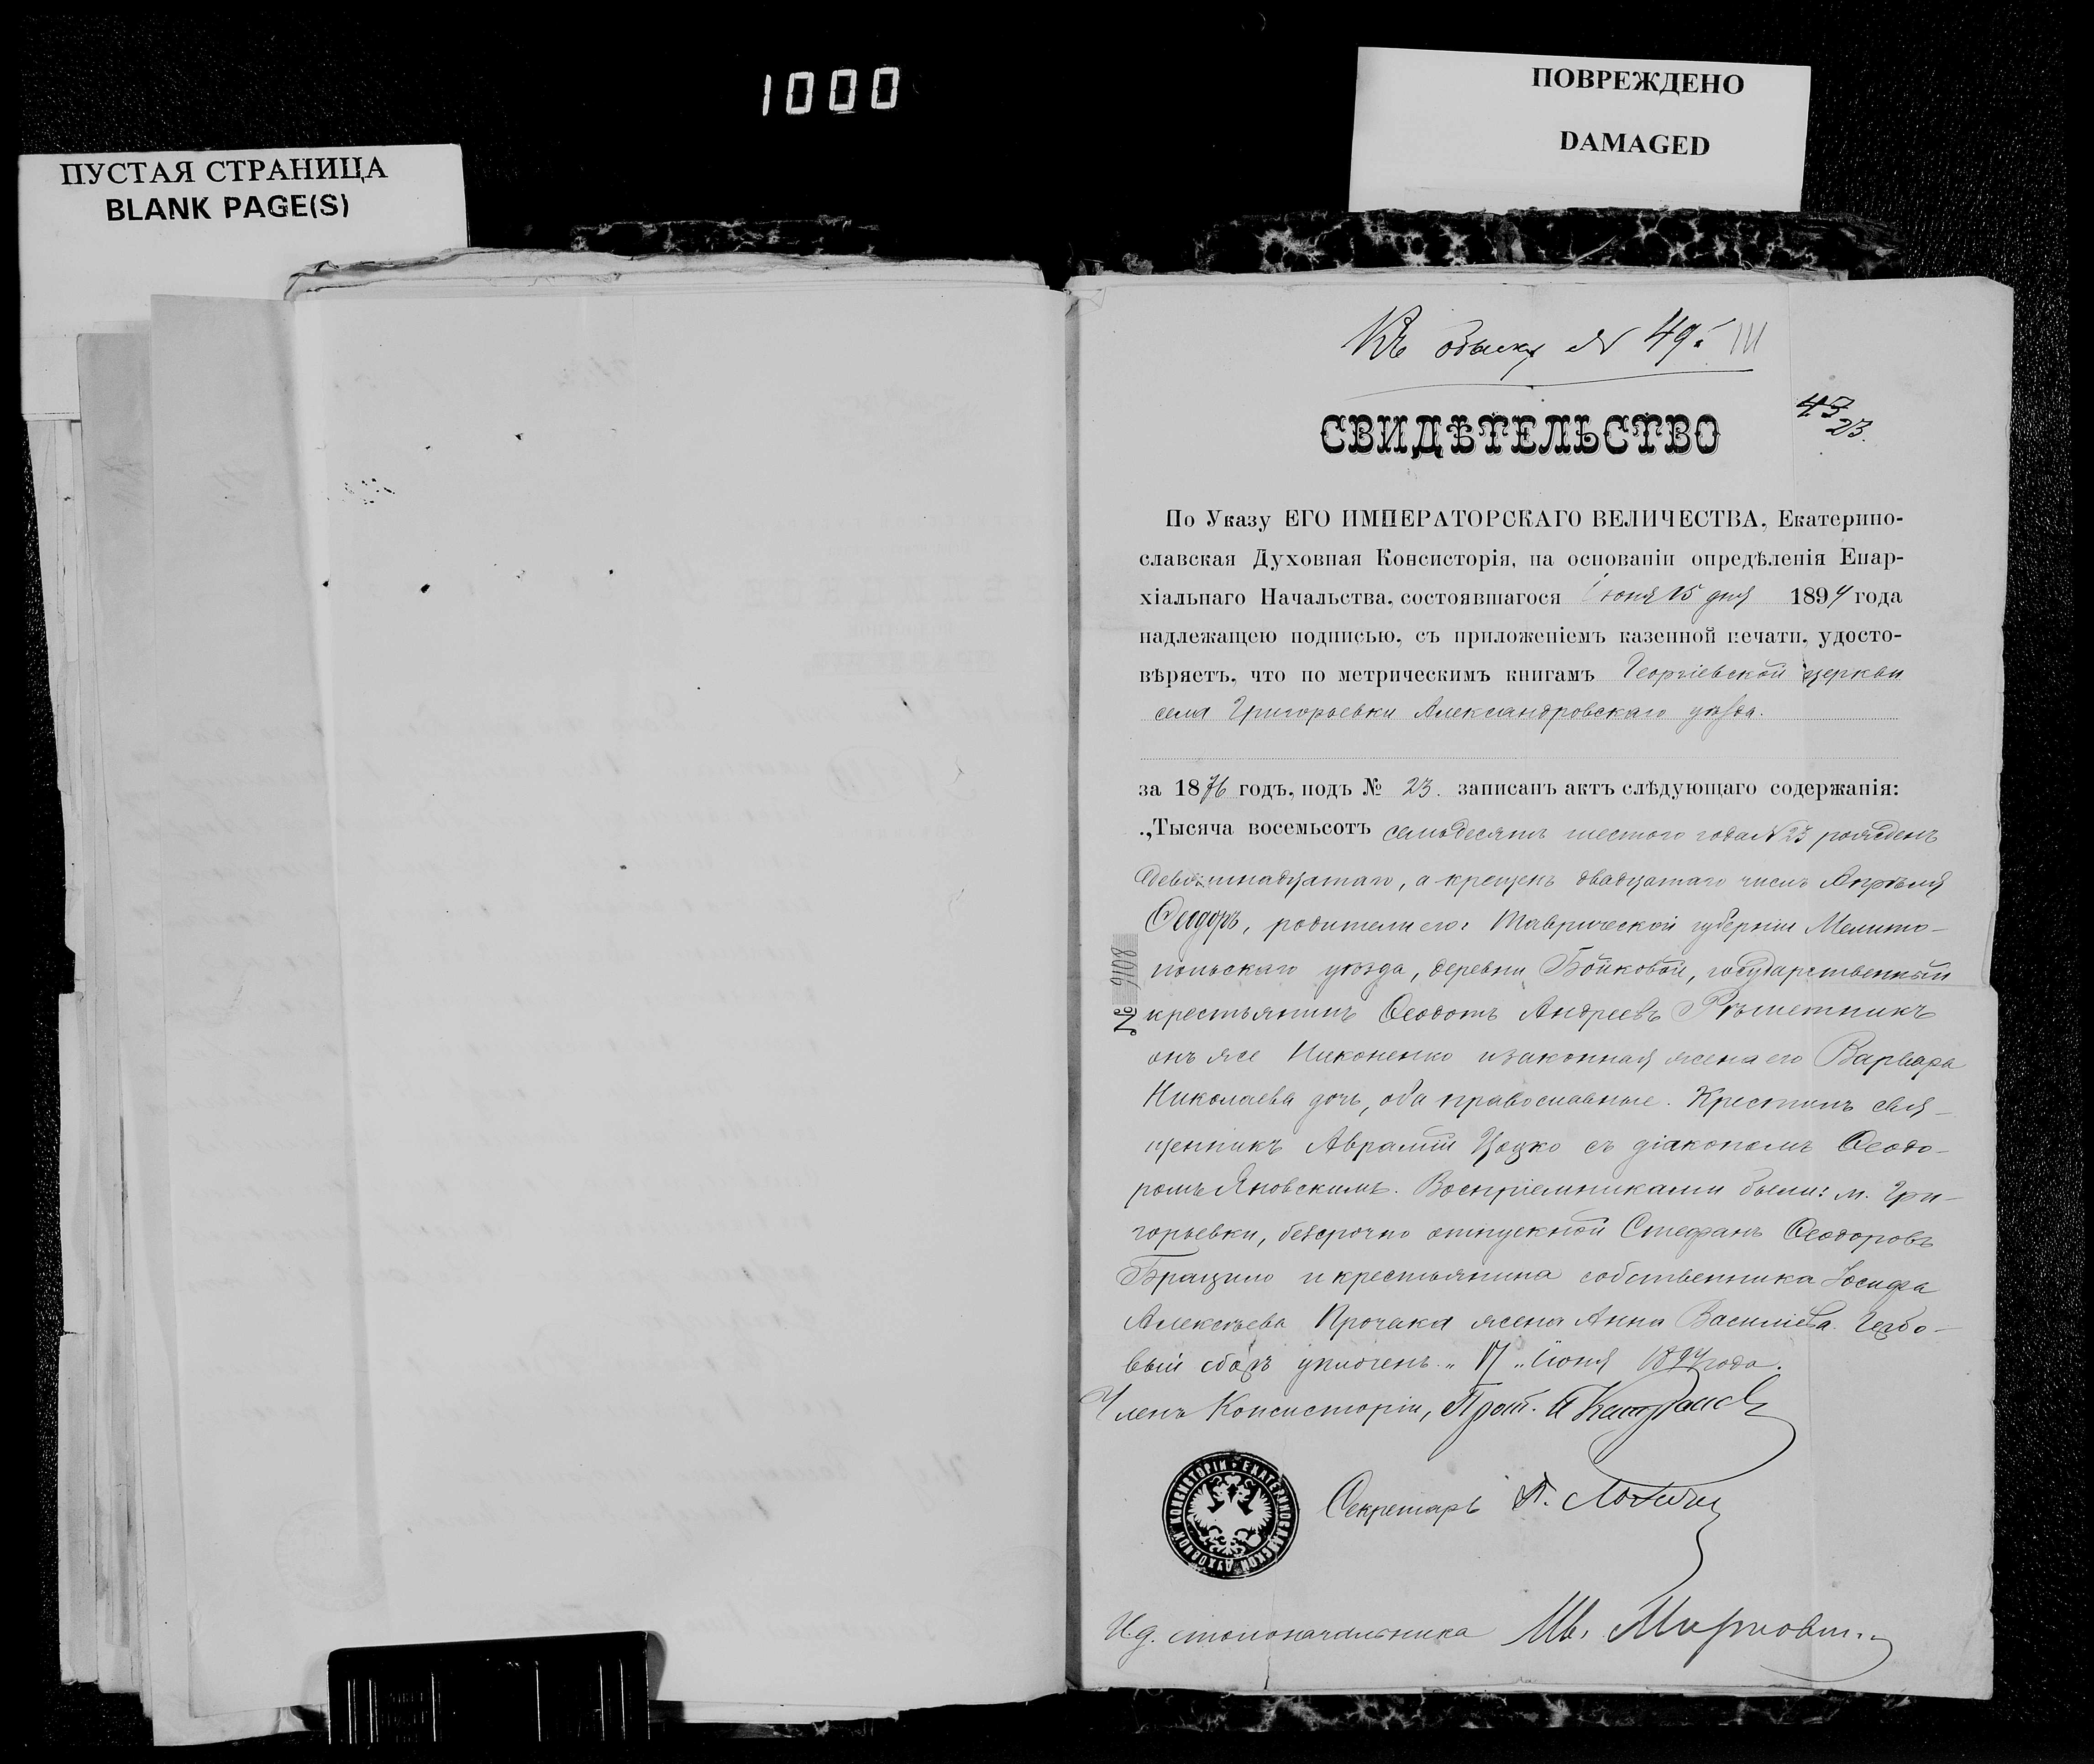 1000
ПОВРЕЖДЕНО
DAMAGED
ПУСТАЯ СТРАНИЦА
BLANK PAGE(S)
Къ обыску № 49. III
43
23.
СВИДѢТЕЛЬСТВО
По Указу ЕГО ИМПЕРАТОРСКАГО ВЕЛИЧЕСТВА, Екатерино-
славская Духовная Консисторія, на основаніи опредѣленія Епар-
хіальнаго Начальства, состоявшагося Іюня 15 дня 1894 года
надлежащею подписью, съ приложеніемъ казенной печати, удосто-
вѣряетъ, что по метрическимъ книгамъ Георгіевской церкви
села Григорьевки Александровскаго уѣзда.
за 1876 годъ, подъ № 23. записанъ актъ слѣдующаго содержанія:
„Тысяча восемьсотъ семьдесятъ шестого года № 23 рожденъ
девятнадцатаго, а крещенъ двадцатаго числъ Апрѣля
Ѳеодоръ, родители его: Таврической губерніи Мелито-
польскаго уѣзда, деревни Бойковой, государственный
№ 9108
крестьянинъ Ѳеодотъ Андреевъ Рѣшетникъ
онъ же Никоненко и законная жена его Варвара
Николаева дочь, оба православные. Крестилъ свя-
щенникъ Аврамій Цацко съ діакономъ Ѳеодо-
ромъ Яновскимъ. Воспріемниками были: м. Гри-
горьевки, безсрочно отпускной Стефанъ Ѳеодоровъ
и крестьянина собственника Іосифа
Алексѣева жена Анна Василіева. Гербо-
вый сборъ уплоченъ. „17„ Іюня 1894 года.
Членъ Консисторіи, Прот.
ЕКАТЕРИНОСЛАВСКОЙ ДУХОВНОЙ КОНСИСТОРІИ
Секретарь
И.д. столоначальника